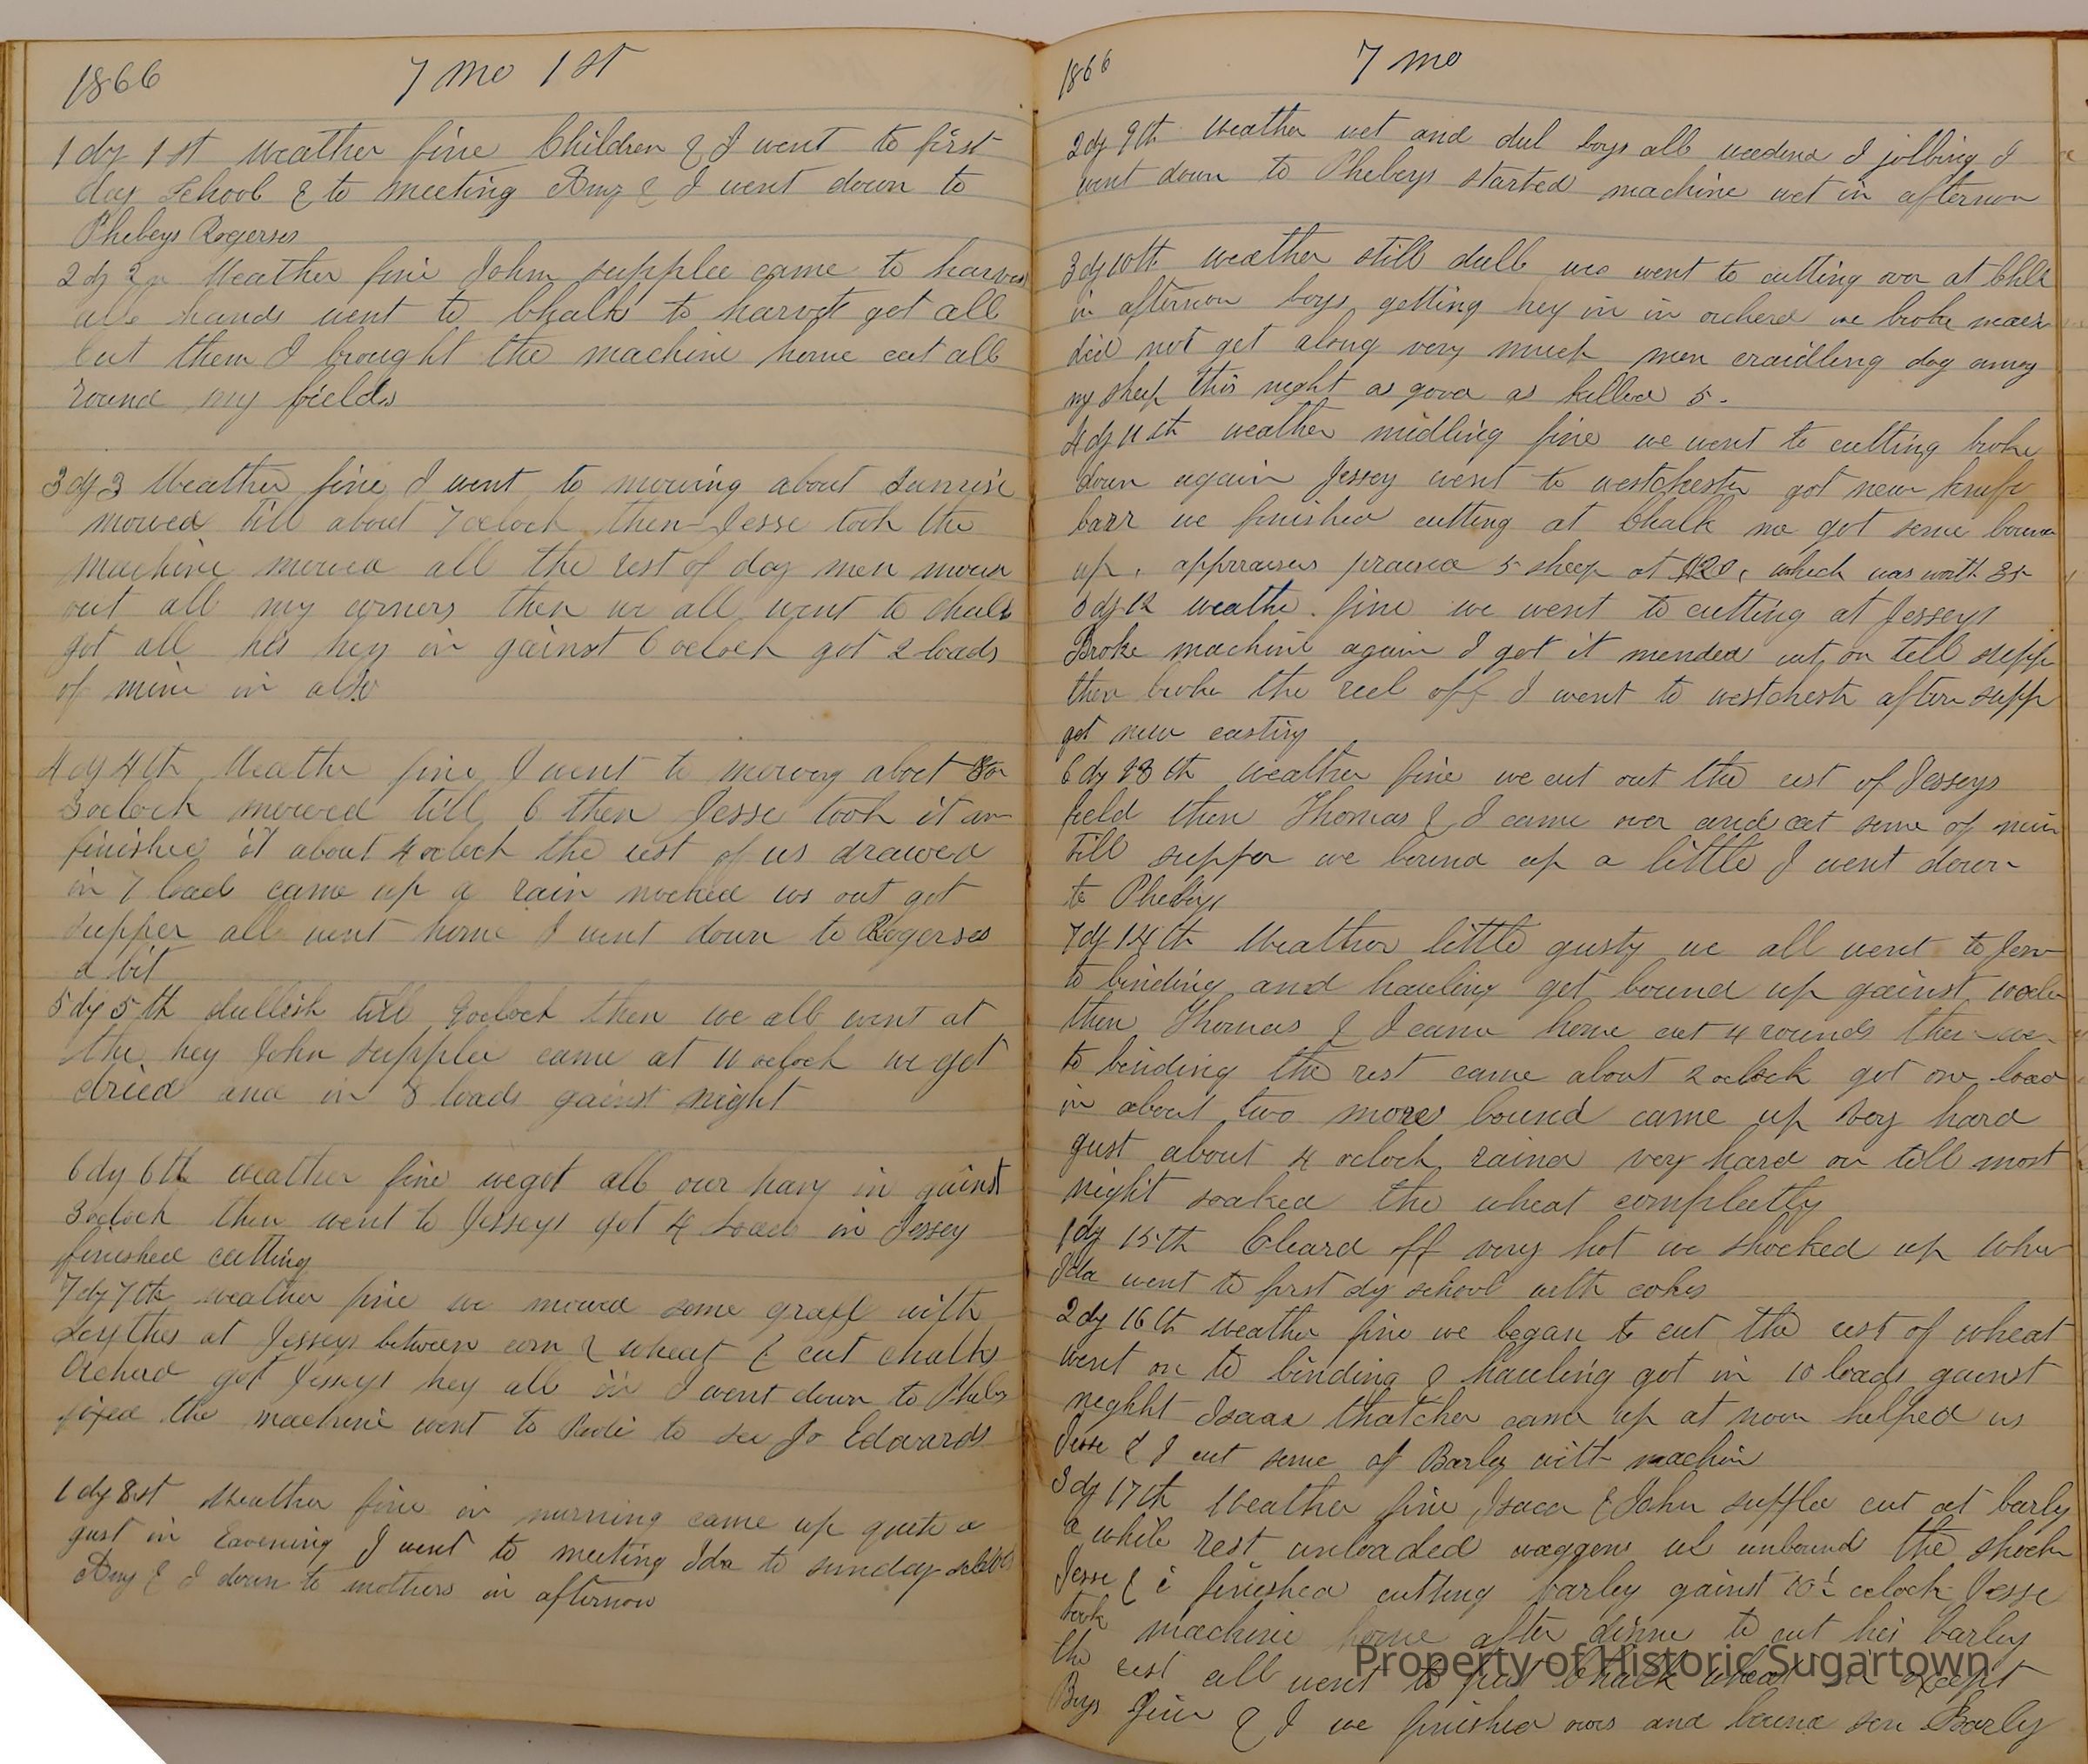 1866 7 mo 1st
1 dy 1st Weather fine Children & I went to first
day School & to meeting Amy & I went down to
Phebeys Rogerses
2 dy 2n Weather fine John supplee came to harves
all hands went to Chalks to harvst got all
Cut them I brought the machine home cut all
round my fields
3 dy 3 Weather fine I went to mowing about Sunrise
mowed till about 7 oclock then Jesse took the
machine mowed all the rest of day men mown
out all my corners then we all went to chalks
got all his hey in gainst 6 oclock got 2 loads
of mine in also
4 dy 4th Weather fine I went to mowing abot
3 oclock mowed till 6 then Jesse took it an
finished it about 4 oclock the rest of us drawed
in 7 load came up a rain nocked us out got
supper all went home I went down to Rogerses
a bit
5 dy 5th dullish till 9 oclock then we all went at
the hey John supplee came at 11 oclock we got
dried and in 8 loads gainst night
6 dy 6th weather fine we got all our hay in gainst
3 oclock then went to Jesseys got 4 Load in Jessey
finished cutting
7 dy 7th weather fine we mowed some grass with
scythes at Jesseys between corn & wheat & cut chalks
Orcherd got Jesseys hey all in I went down to Phebes
fixed the machine went to to see Jo Edwards
1 dy 8st Weather fine in morning came up quite a
gust in Eavening I went to meeting Ida to sunday school
Amy & I down to mothers in afternoon
1866 7 mo
2 dy 9th Weather wet and dul boys all weedend I jolbing I
went down to Phebeys started machine wet in afternon
3 dy 10th weather still dull we went to cutting over at Chlk
in afternon boys getting hey in in orcherd we broke mach
did not get along very much men craidling dog among
my sheep this night as good as killed 5.
4 dy 11th weather midling fine we went to cutting broke
down again Jessey went to westchester got new knife
barr we finished cutting at Chalk we got some bound
up. apprraisers praised 5 sheep at $20, which was worth 35
5 dy 12 weathe. fine we went to cutting at Jesseys
Broke machine again I got it mended cut on tell supp
then broke the reel off I went to westchestr after supp
got new casting
6 dy 13th weather fine we cut out the rest of Jesseys
field then Thomas & I came over and cut some of mine
till supper we bound up a little I went down
to Phebeys
7 dy 14th Weather little gusty we all went to Jess
to binding and hauling got bound up gainst
then Thomas & I came home cut 4 rounds then we
to binding the rest came about 2 oclock got one load
in about two more bound came up very hard
gust about 4 oclock raind very hard on till most
night soaked the wheat compleetly
1 dy 15th Cleard off very hot we shocked up whe
Ida went to first dy school with cohes
2 dy 16th weather fine we began to cut the rest of wheat
went on to binding & hauling got in 10 loads gainst
neghht Isaac thatcher came up at noon helped us
Jesse & I cut some of Barley with machin
3 dy 17th Weather fine Isaca & John supplee cut at barly
a while rest unloaded waggons we unbound the shocks
Jesse & i finished cutting barley gainst 10½ oclock Jesse
took machine home after dinne to cut his barley
the rest all went to put Chalk wheat in except
Boys & I we finished ours and bound son Barly
Property of Historic Sugartown